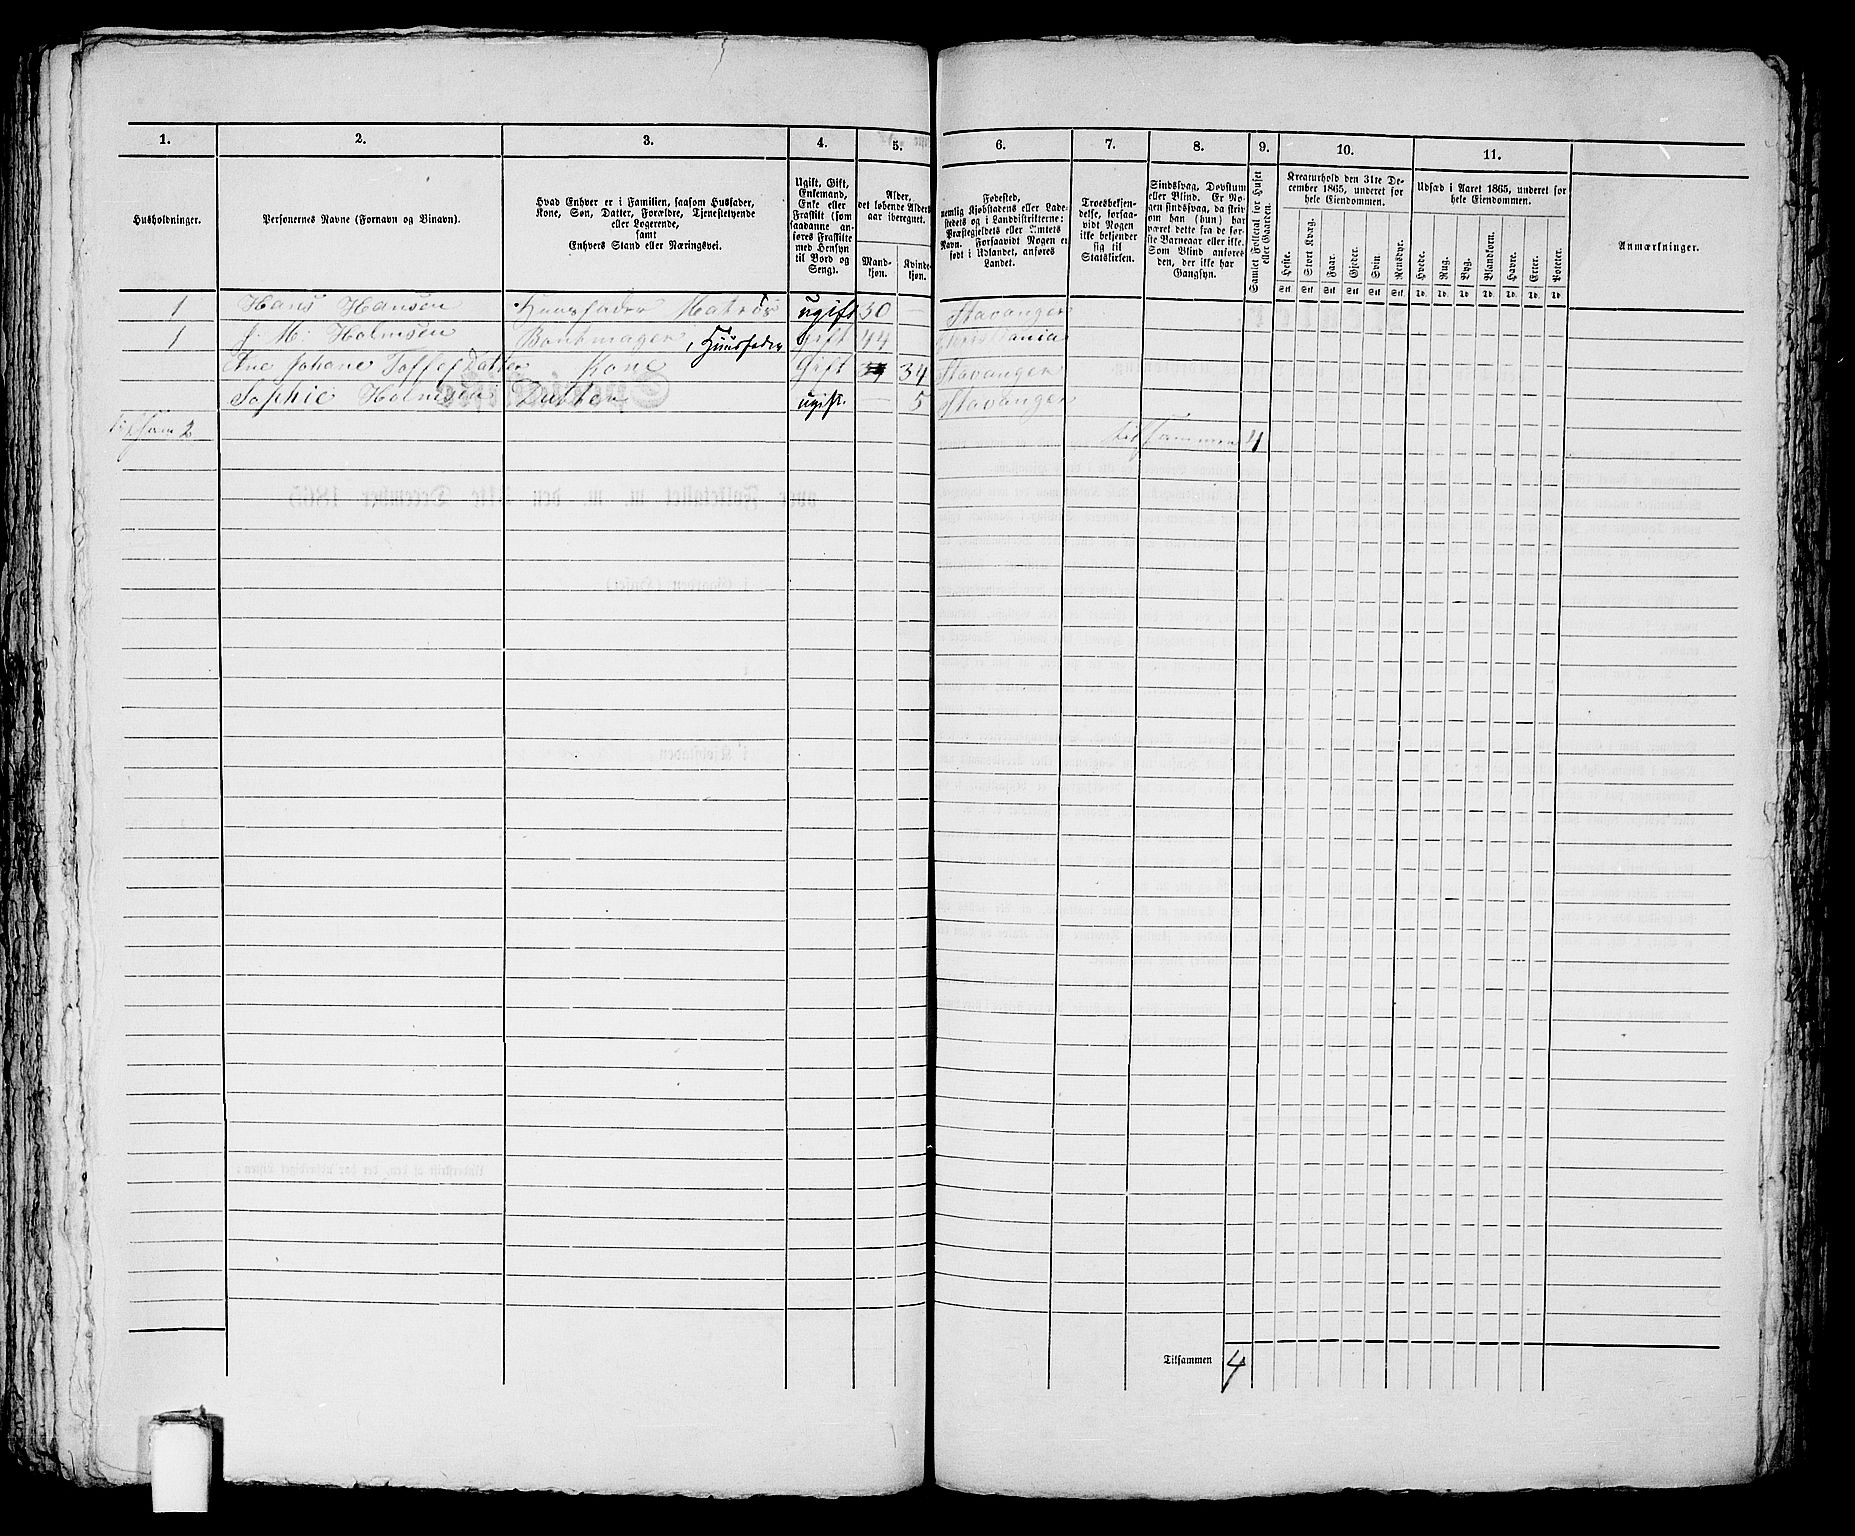 1. 2. 3. 4. 5. 6. 7. 8. 9. 10. 11.
Husholdninger.
Personernes Navne (Fornavn og Binavn).
Hvad Enhver er i Familien, saasom Husfader,
Kone, Søn, Datter, Forældre, Tjenestetyende
eller Logerende,
samt
Enhvers Stand eller Næringsvei.
Ugift, Gift,
Enkemand,
Enke eller
Fraskilt (som
saadanne an-
føres Fraskilte
med Hensyn
til Bord og
Seng).
Alder,
det løbende Alders-
aar iberegnet.
Mand-
kjøn.
Kvinde-
kjøn.
Fødested,
nemlig Kjøbstadens eller Lade-
stedets og i Landdistrikterne:
Præstegjeldets eller Amtets
Navn. Forsaavidt Nogen er
født i Udlandet, anføres
Landet.
Troesbekjen-
delse, forsaa-
vidt Nogen
ikke bekjender
sig til
Statskirken.
Sindssvag, Døvstum
eller Blind. Er No-
gen sindssvag, da skriv
om han (hun) har
været dette fra de før-
ste Barneaar eller ikke.
Som Blind anføres
den, der ikke har
Gangsyn.
Samlet Folketal for Huset
eller Gaarden.
Kreaturhold den 31te De-
cember 1865, underet for
hele Eiendommen.
Heste. Stort Kvæg. Faar. Gjeder. Svin. Rensdyr.
Stk. Stk. Stk. Stk. Stk. Stk.
Udsæd i Aaret 1865, underet for
hele Eiendommen.
Hvede. Rug. Byg. Blandkorn. Havre. Erter. Poteter.
Td. Td. Td. Td. Td. Td. Td.
Anmærkninger.
1 Hans Hansen Huusfader Matros ugift 30 — Stavanger
1 J. M. Holmsen Huusfader Gift 44 Christiania
Ane Johane Kone Gift 34 Stavanger
Sophie Holmsen Datter ugift. — 5 Stavanger
Tilsam 2 tilsammen 4
Tilsammen 4